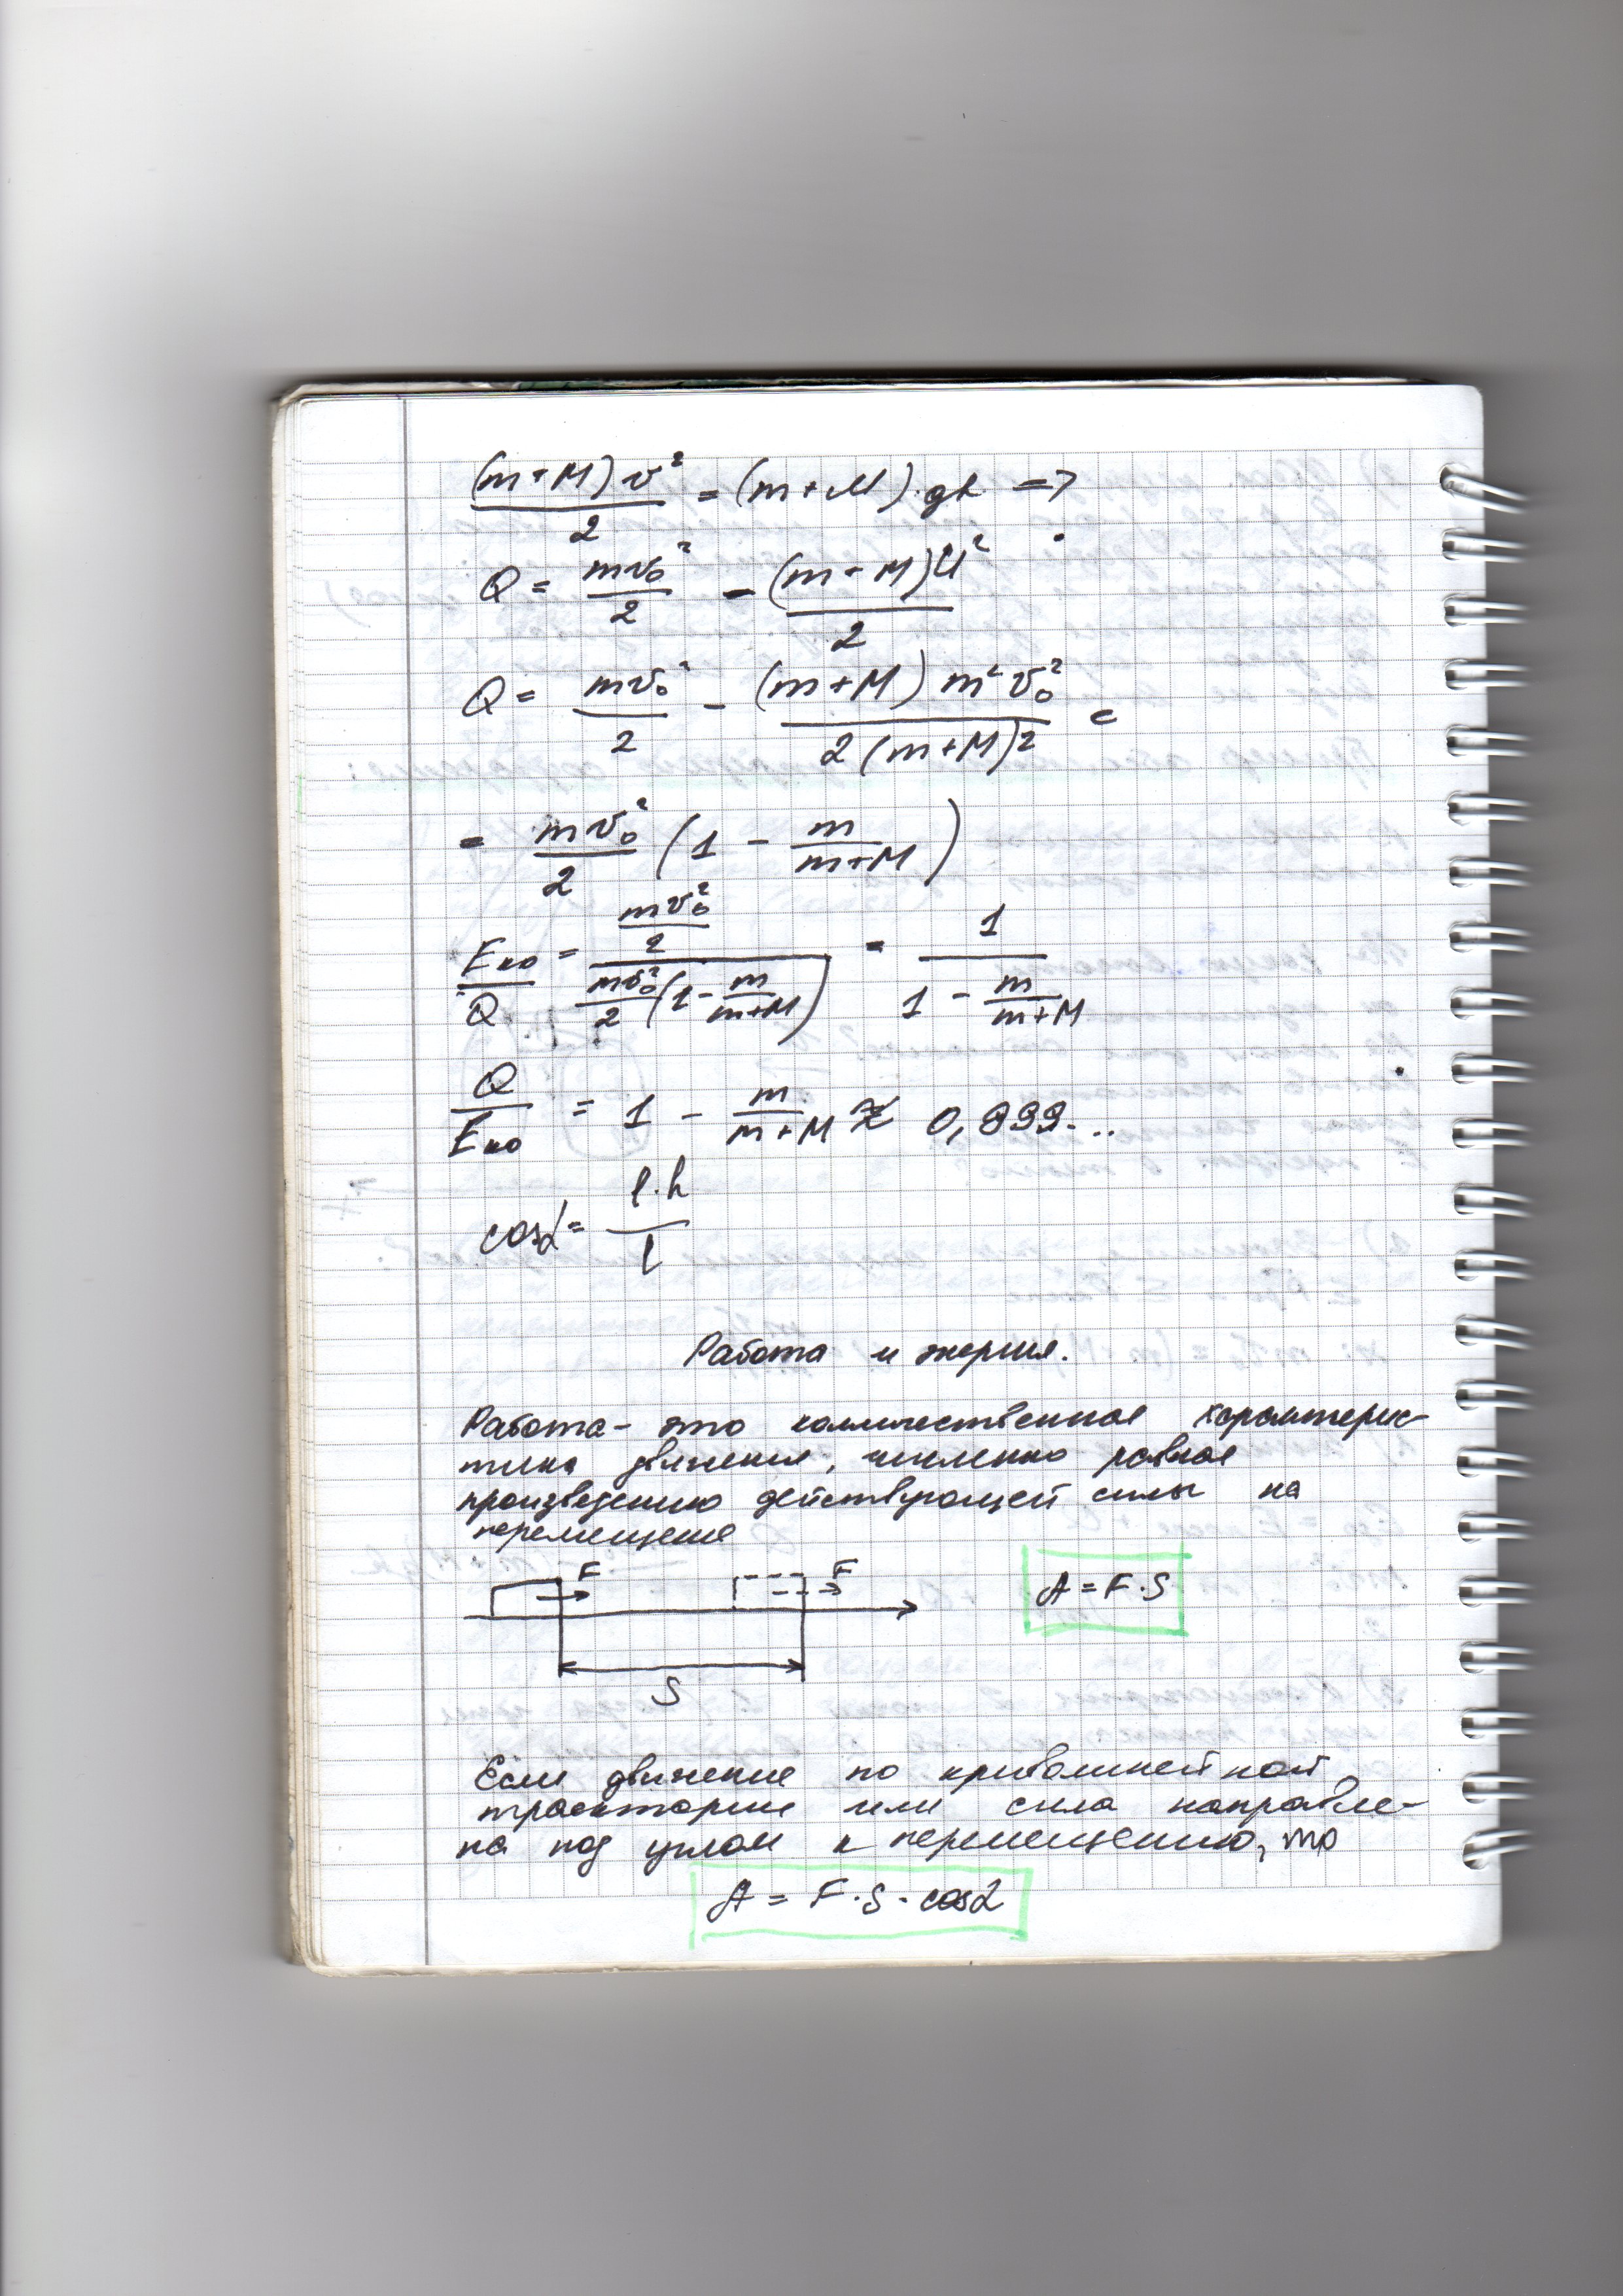 (m+M)v²/2 = (m+M)·gh =>
Q = mv₀²/2 - (m+M)U²/2
Q = mv₀²/2 - (m+M)m²v₀²/2(m+M)² =
= mv₀²/2 (1 - m/m+M)
Eко/Q = mv₀²/2 / mv₀²/2 (1 - m/m+M) = 1 / 1 - m/m+M
Q/Eко = 1 - m/m+M ≈ 0,999...
cosα = l·h/l
Работа и энергия.
Работа - это колличественная характерис-
тика движения, численно равная
произведению действующей силы на
перемещение
F F
A = F·S
S
Если движение по криволинейной
траектории или сила направле-
на под углом к перемещению, то
A = F·S·cosα